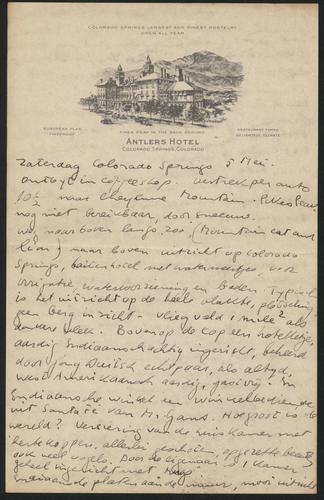 COLORADO SPRINGS LARGEST AND FINEST HOSTELRY
OPEN ALL YEAR
EUROPEAN PLAN
FIREPROOF
PIKES PEAK IN THE BACK GROUND
RESTAURANT FAMED
DELIGHTFUL CLIMATE
ANTLERS HOTEL
COLORADO SPRINGS, COLORADO
Zaterdag Colorado Springs 5 Mei.
ontbijt in coffeeshop. Vertrek per auto
10½ naar Cheyenne Mountain. Pikes Peak
nog niet bereikbaar, door sneeuw.
weg naar boven langs zoo (Mountain cat and
lion) naar boven uitzicht op Colorado
Springs, buitenhotel met watermeertjes, voor
irrigatie, watervoorziening en baden. Typisch
is het uitzicht op de heele vlakte, plotseling
een berg in zicht. vliegveld 1 mile² als
donkere vlek. Bovenop de top een hotelletje,
aardig Indiaansachtig ingericht, beheerd
door jong Duitsch echtpaar, als altijd,
west Amerikaansch aardig, gaoivrij. In
Indiaansche winkel en
uit Santa Fe van Mr. Gans. Hoe groot is de
wereld? Versiering van de huiskamer met
hertekoppen, allerlei geschoten, opgezette beesten
ook veel vogels. Door de eigenaar 1 kamer
geheel ingericht met
Indiaansche platen aan de muur, mooi uitzicht